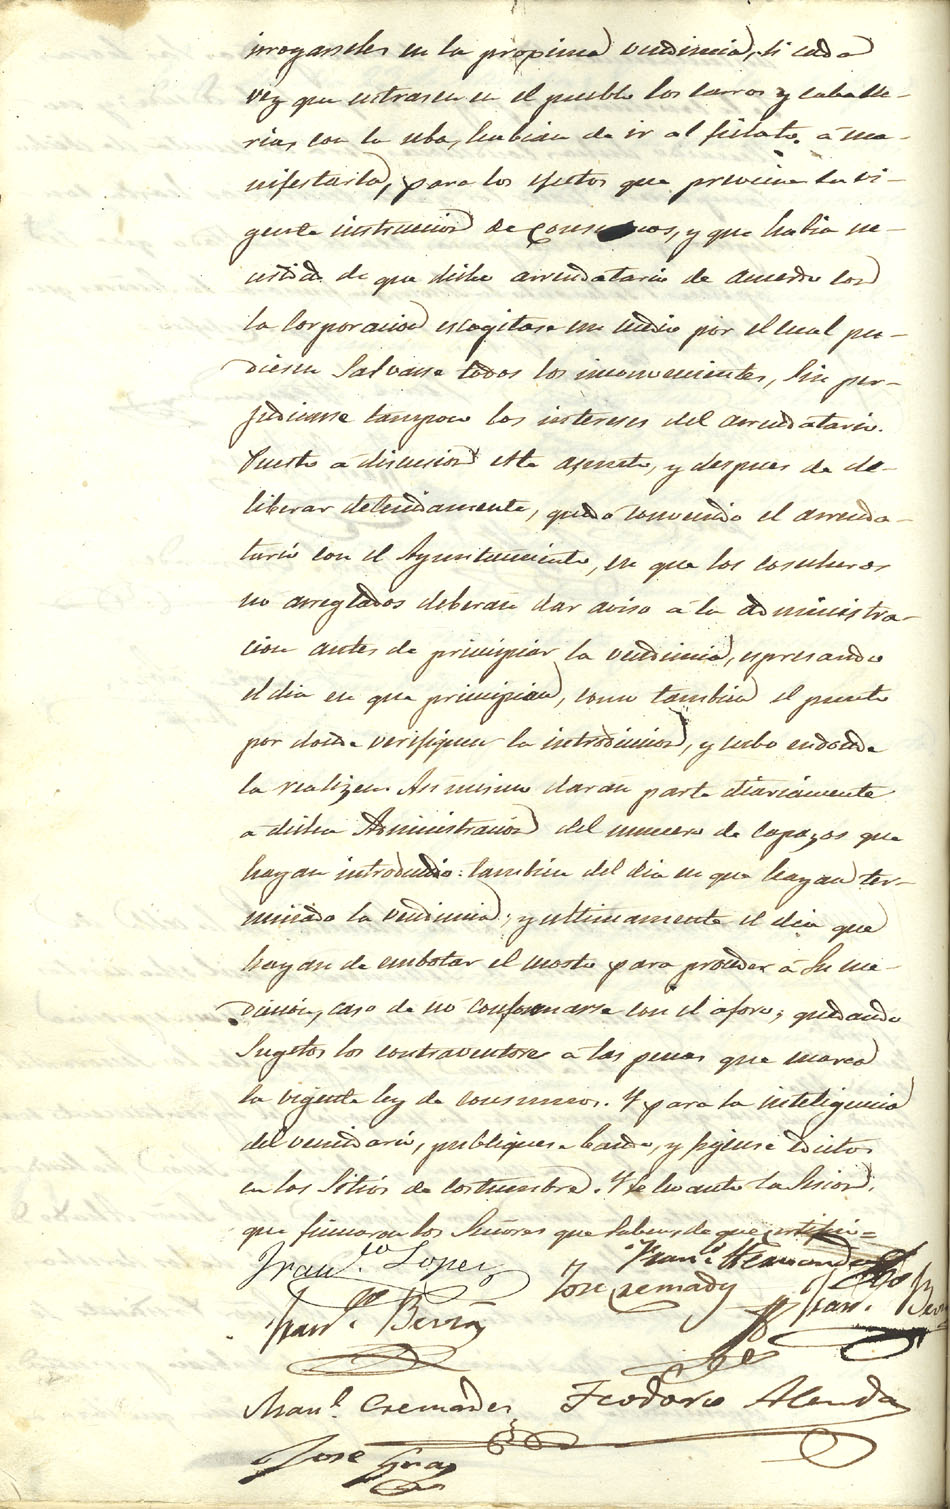 irrogarseles en la proxima vendimia, si cada
vez que entrasen en el pueblo los carros y caballe-
rias con la uba, habian de ir al fielato á ma-
nifestarla, para los efectos que previene la vi-
gente instruccion de consumos, y que habia ne-
cesidad de que dicho arrendatario de acuerdo con
la Corporacion escogitase un medio por el cual pu-
diesen salvarse todos los inconvenientes, sin per-
judicarse tampoco los intereses del arrendatario.
Puesto á discusion este asunto, y despues de de-
liberar detenidamente, quedó convenido el arrenda-
tario con el Ayuntamiento, en que los cosecheros
no arreglados deberan dar aviso á la administra-
cion antes de principiar la vendimia, espresando
el dia en que principian, como tambien el punto
por donde verifiquen la introduccion, y cubo endonde
la realizen. Asimismo daran parte diariamente
a dicha Administracion del numero de capazos que
hayan introducido: tambien del dia en que hayan ter-
minado la vendimia; y ultimamente el dia que
hayan de embotar el mosto para proceder á su me-
dicion, caso de no conformarse con el aforo; quedando
sugetos los contraventores a las penas que marca
la vigente ley de consumos. Y para la inteligencia
del vecindario, publiquese bando, y fijense edictos
en los sitios de costumbre. Y se levantó la sesion,
que firmaron los Señores que saben de que certifico=
Fran.co Lopez
Fran.co Hernandez
José Cremades
Fran.co Berna
Fran.co Bern
Man.l Cremades Teodoro Alenda
José Gras